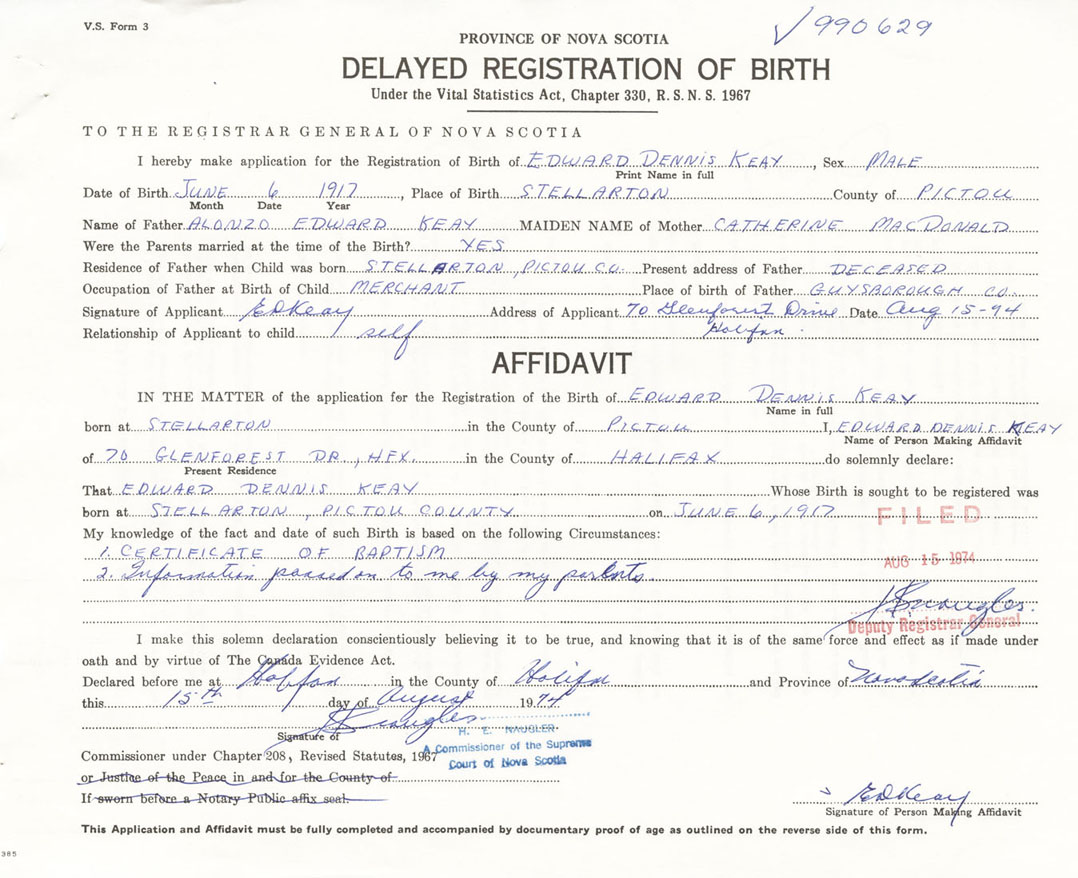 V.S. Form 3
✓ 990629
PROVINCE OF NOVA SCOTIA
DELAYED REGISTRATION OF BIRTH
Under the Vital Statistics Act, Chapter 330, R. S. N. S. 1967
TO THE REGISTRAR GENERAL OF NOVA SCOTIA
I hereby make application for the Registration of Birth of EDWARD DENNIS KEAY, Sex MALE
Print Name in full
Date of Birth JUNE 6 1917, Place of Birth STELLARTON County of PICTOU
Month Date Year
Name of Father ALONZO EDWARD KEAY MAIDEN NAME of Mother CATHERINE MACDONALD
Were the Parents married at the time of the Birth? YES
Residence of Father when Child was born STELLARTON, PICTOU CO. Present address of Father DECEASED
Occupation of Father at Birth of Child MERCHANT Place of birth of Father GUYSBOROUGH CO.
Signature of Applicant EDKeay Address of Applicant 70 Glenforest Drive Date Aug 15-94
Relationship of Applicant to child self Halifax.
AFFIDAVIT
IN THE MATTER of the application for the Registration of the Birth of EDWARD DENNIS KEAY
Name in full
born at STELLARTON in the County of PICTOU I, EDWARD DENNIS KEAY
Name of Person Making Affidavit
of 70 GLENFOREST DR., HFX. in the County of HALIFAX do solemnly declare:
Present Residence
That EDWARD DENNIS KEAY Whose Birth is sought to be registered was
born at STELLARTON, PICTOU COUNTY on JUNE 6, 1917
FILED
My knowledge of the fact and date of such Birth is based on the following Circumstances:
1. CERTIFICATE OF BAPTISM
AUG 15 1974
2. Information passed on to me by my parents.
HENaugler
Deputy Registrar General
I make this solemn declaration conscientiously believing it to be true, and knowing that it is of the same force and effect as if made under
oath and by virtue of The Canada Evidence Act.
Declared before me at Halifax in the County of Halifax and Province of Nova Scotia
this 15th day of August 1974
HENaugler
Signature of
H. E. NAUGLER
A Commissioner of the Supreme
Court of Nova Scotia
Commissioner under Chapter 208, Revised Statutes, 1967
or Justice of the Peace in and for the County of
If sworn before a Notary Public affix seal.
EDKeay
Signature of Person Making Affidavit
This Application and Affidavit must be fully completed and accompanied by documentary proof of age as outlined on the reverse side of this form.
385